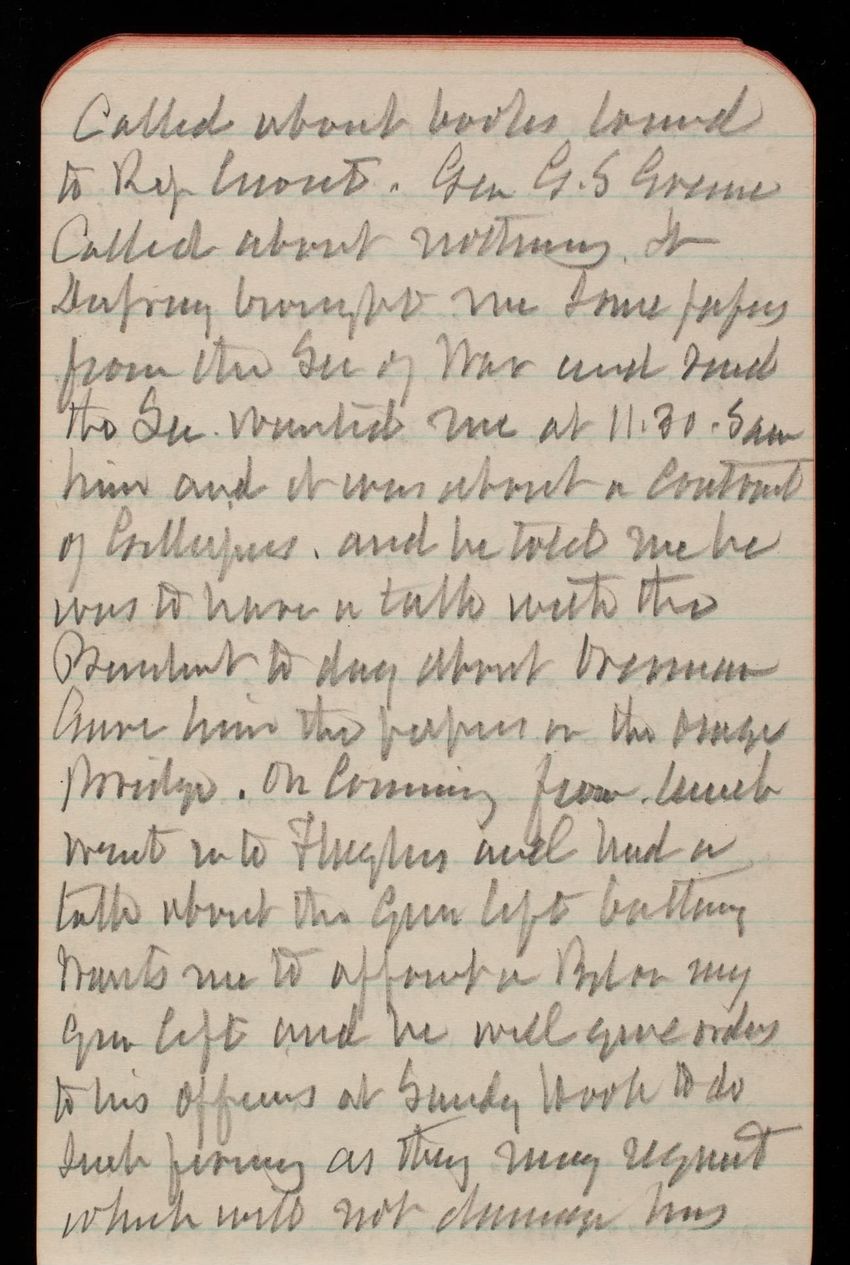 Called about books loaned
to Rep. Gen G. S Greene
Called about nothing. Lt
brought me some papers
from the Sec of War and said
the Sec. wanted me at 11.30. Saw
him and it was about a Contract
of and he told me he
was to have a talk with the
President to day about
Gave him the papers on the Osage
Bridge. On Coming from lunch
went into and had a
talk about the Gun lift battery
Wants me to appoint a Bd on my
Gun lift and he will give orders
to his officers at Sandy Hook to do
such firing as they may request
which will not damage his